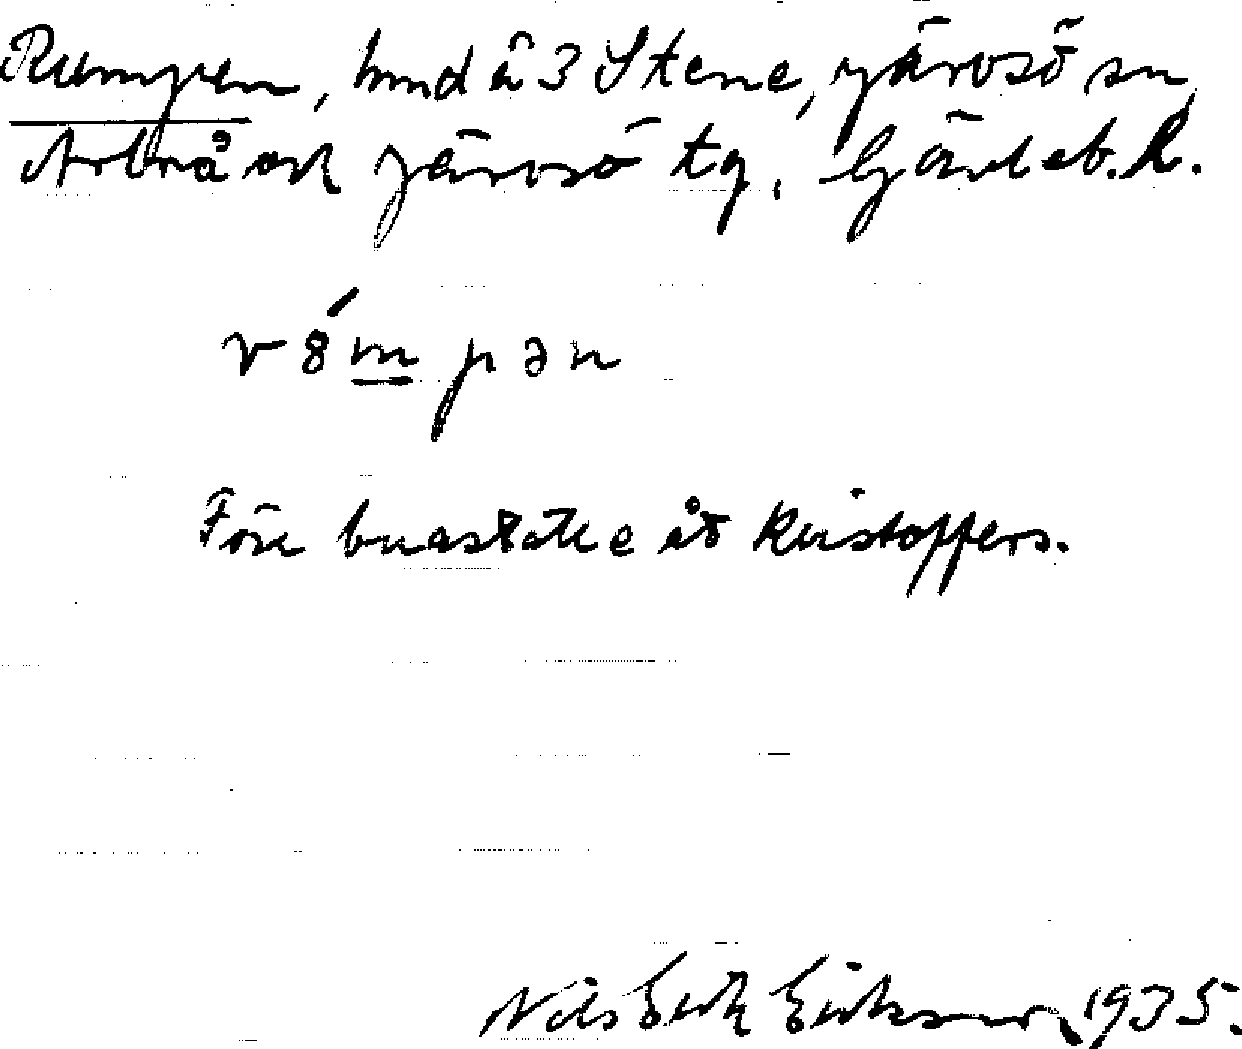 Rumpen, hmd å 3 Stene, Järvsö sn,
Arbrå och Järvsö tg, Gävleb. l.
r 8́ m p ə n
Före buaställe åt Kristoffers.
Nils Erik Eriksson, 1935.